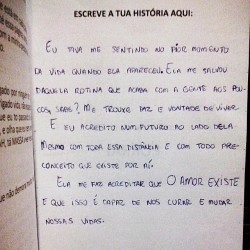 ESCREVE A TUA HISTÓRIA AQUI:
EU TAVA ME SENTINDO NO PIOR MOMENTO
DA VIDA QUANDO ELA APARECEU. ELA ME SALVOU
DAQUELA ROTINA QUE ACABA COM A GENTE AOS POU-
COS, SABE? ME TROUXE PAZ E VONTADE DE VIVER.
E EU ACREDITO NUM FUTURO AO LADO DELA.
MESMO COM TODA ESSA DISTÂNCIA E COM TODO PRE-
CONCEITO QUE EXISTE POR AÍ.
ELA ME FAZ ACREDITAR QUE O AMOR EXISTE
E QUE ISSO É CAPAZ DE NOS CURAR E MUDAR
NOSSAS VIDAS.